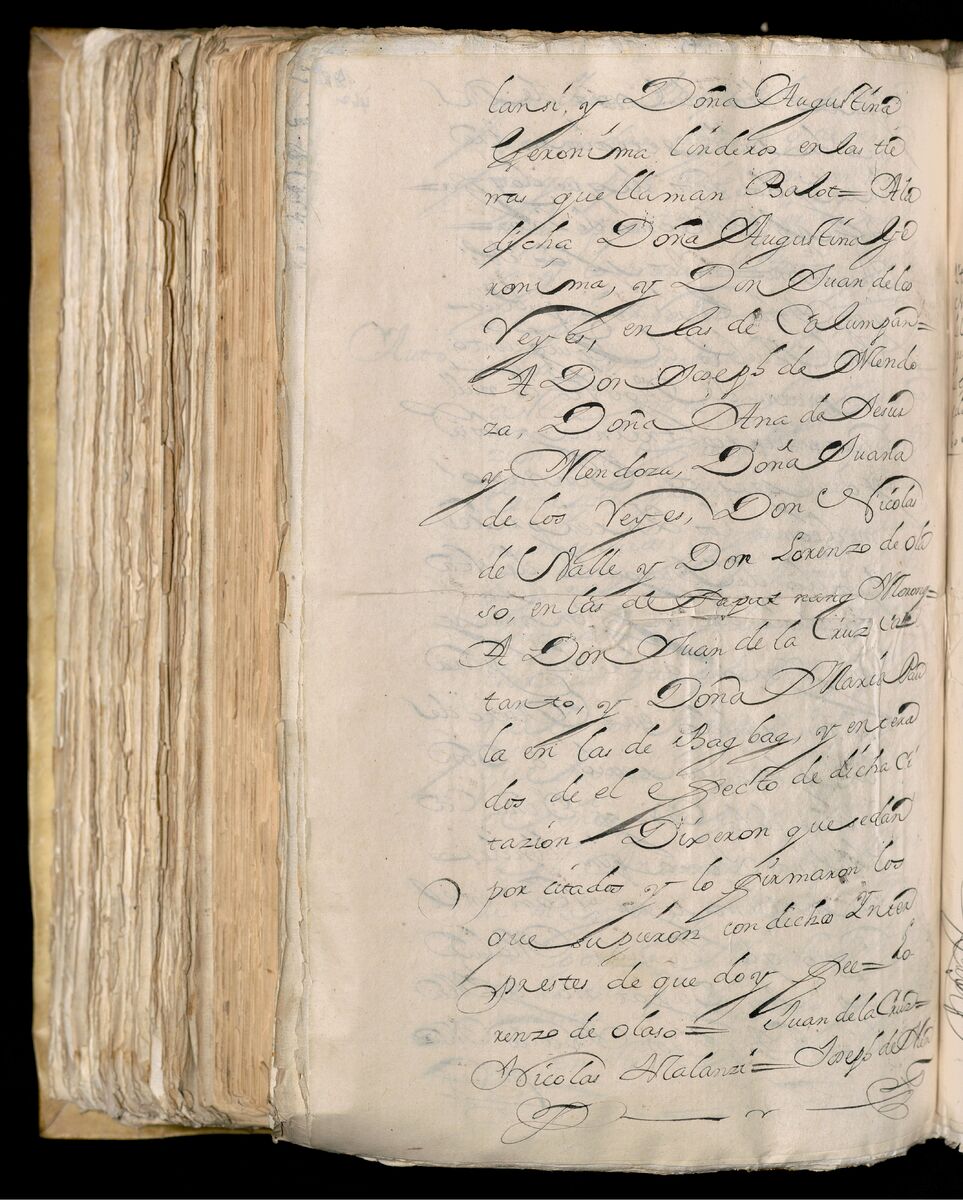 lansi, y Doña Augustina
Geronima linderos en las tie
rras que llaman Balot= A la
dicha Doña Augustina Ge
ronima, y Don Juan de los
Reyes, en las de Calumpan=
A Don Joseph de Mendo
za, Doña Ana de Jesus
y Mendoza, Doña Juana
de los Reyes, Don Nicolas
de Valle y Don Lorenzo de ola
so, en las de Paput nang
A Don Juan de la Cruz
tanto, y Doña Maria Pau
la en las de Bagbag, y entera
dos de el efecto de dicha Ci
tazión Dixeron que se dan
por citados y lo firmaron los
que supieron con dichos Ynter
prestes de que doy fee= Lo
renzo de olaso= Juan de la Cruz=
Nicolas Malanzi= Joseph de